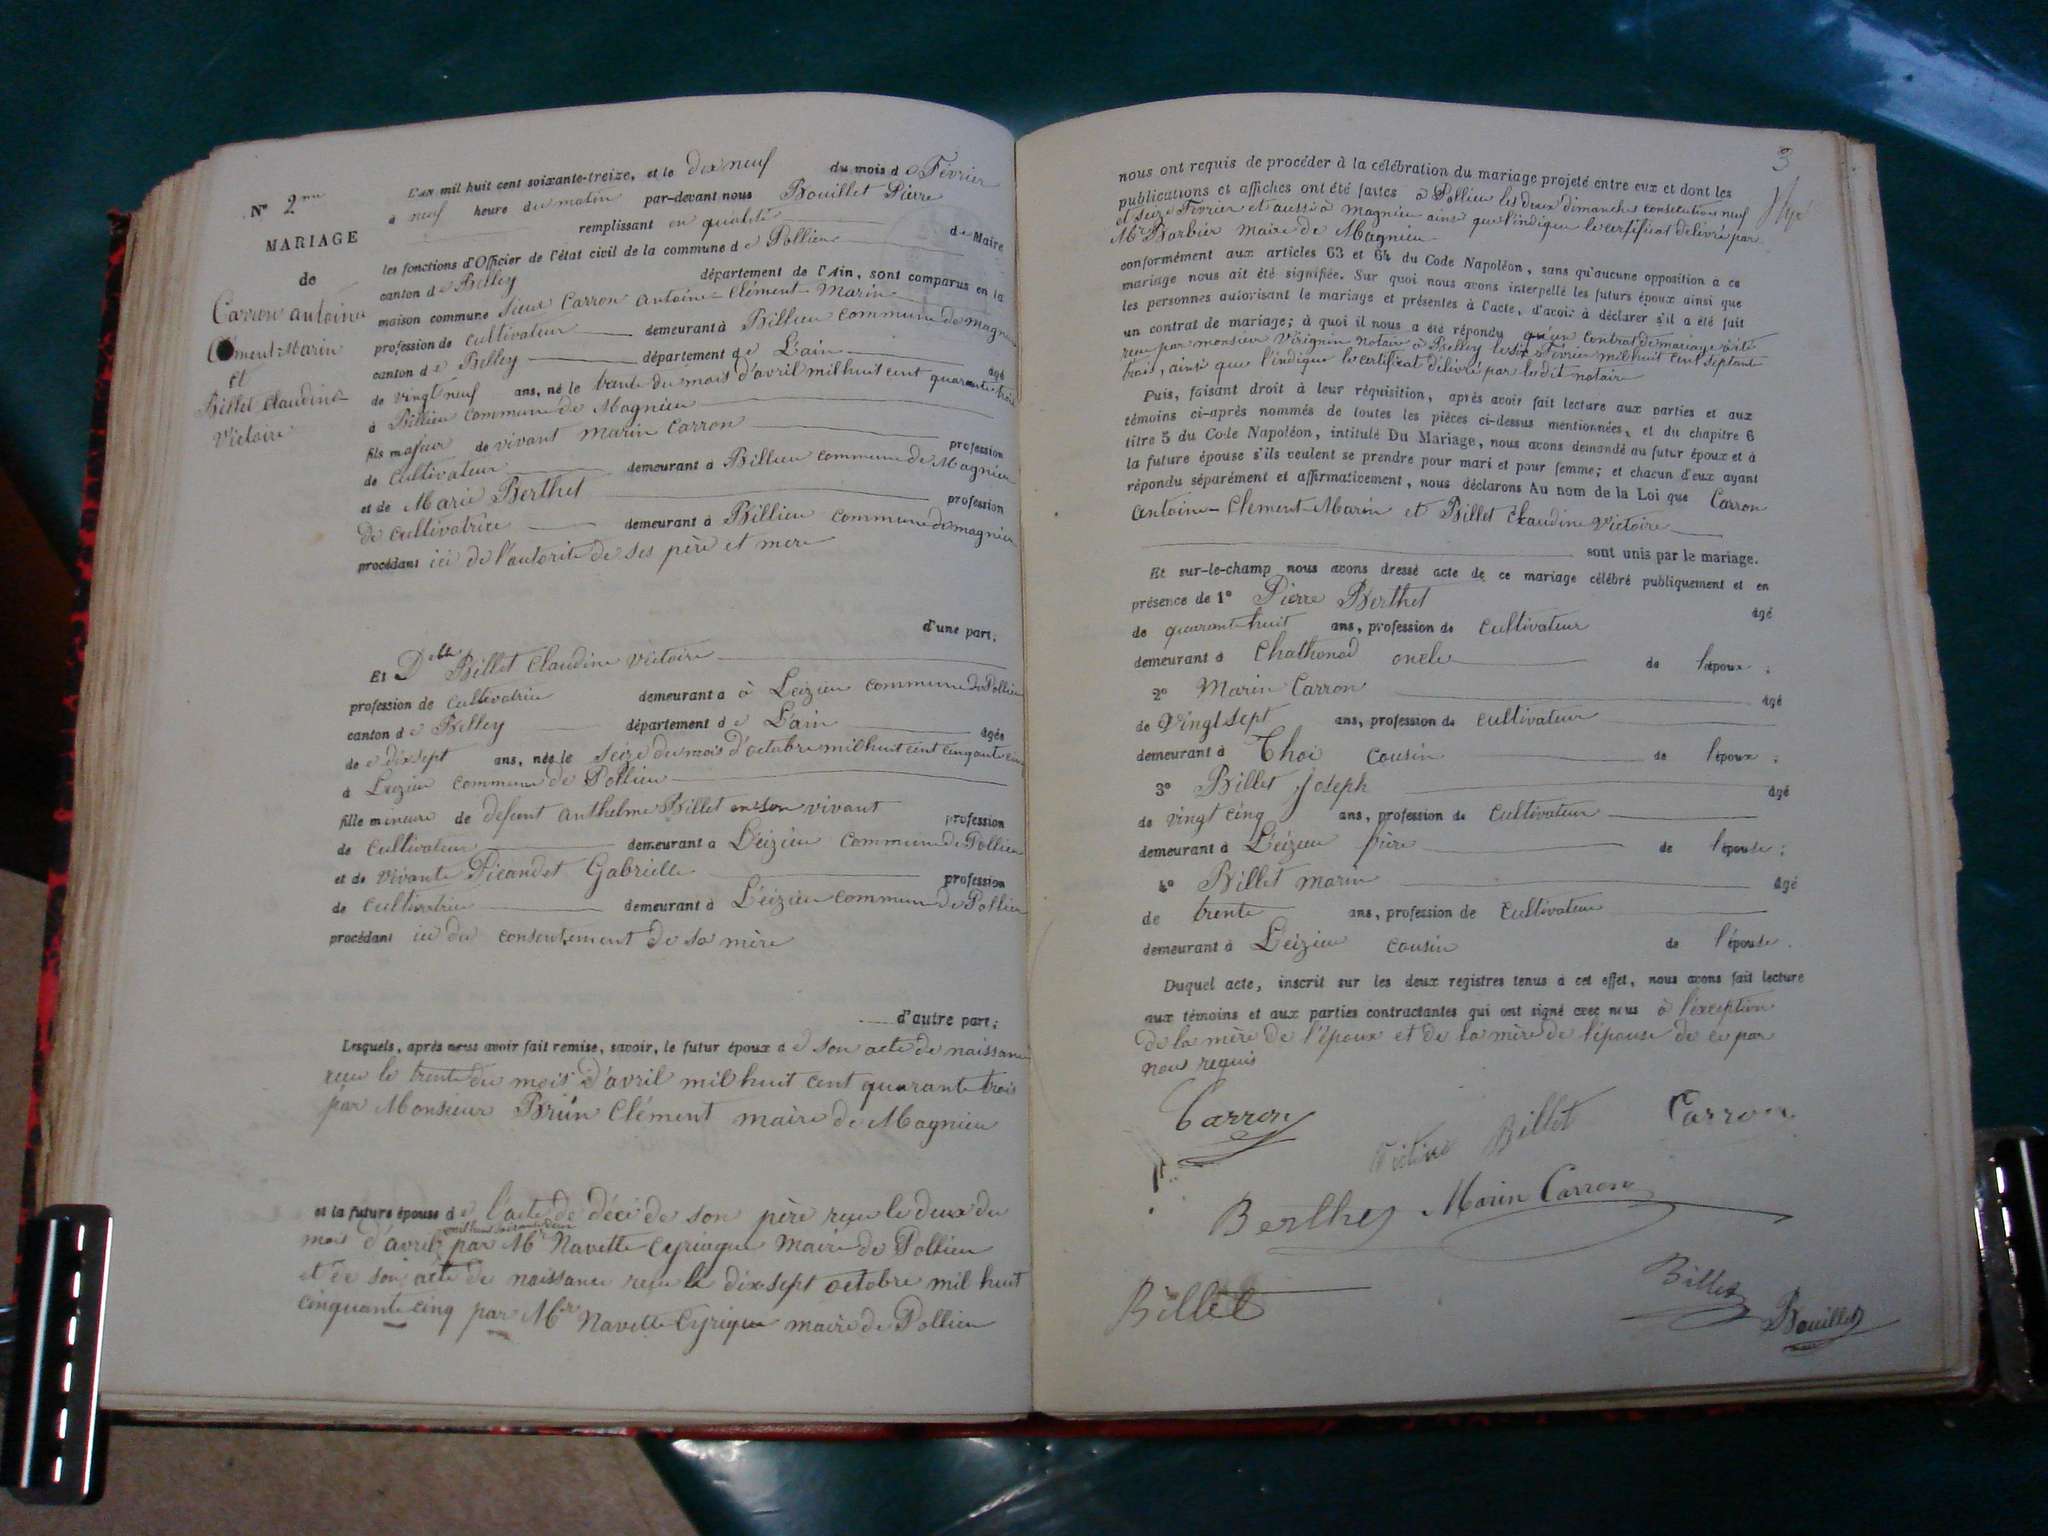 N° 2me
MARIAGE
de
Carron antoine
Clément-Marin
et
Billet Claudine
Victoire
L'an mil huit cent soixante-treize, et le dix neuf du mois de Février
à neuf heure du matin par-devant nous Bouillet Pierre
remplissant en qualité de Maire
les fonctions d'Officier de l'état civil de la commune de Pollieu
canton de Belley département de l'Ain, sont comparus en la
maison commune Sieur Carron Antoine-Clément-Marin
profession de cultivateur demeurant à Billieu commune de magnieu
canton de Belley département de L'ain âgé
de vingt neuf ans, né le trente du mois d'avril mil huit cent quarante trois
à Billieu commune de Magnieu
fils majeur de vivant Marin Carron profession
de cultivateur demeurant à Billieu commune de Magnieu
et de Marie Berthet profession
de cultivatrice demeurant à Billieu commune de magnieu
procédant ici de l'autorité de ses père et mere
d'une part;
Et Delle Billet Claudine Victoire
profession de cultivatrice demeurant à à Leizieu commune de Pollieu
canton de Belley département de L'ain âgée
de dix sept ans, née le seize du mois d'octobre mil huit cent cinquante cinq
à Leizieu commune de Pollieu
fille mineure de defunt Anthelme Billet en son vivant profession
de cultivateur demeurant à Leizieu commune de Pollieu
et de vivante Picandet Gabrielle profession
de cultivatrice demeurant à Leizieu commune de Pollieu
procédant ici du consentement de sa mère
d'autre part;
Lesquels, après nous avoir fait remise, savoir, le futur époux de son acte de naissance
reçu le trente du mois d'avril mil huit cent quarante trois
par Monsieur Brun Clément maire de Magnieu
et la future épouse de l'acte de décé de son père reçu le deux du
mois d'avril par Mr Navette Cyriaque Maire de Pollieu
et de son acte de naissance reçu le dix sept octobre mil huit
cinquante cinq par Mr Navette Cyrique maire de Pollieu
3
nous ont requis de procéder à la célébration du mariage projeté entre eux et dont les
publications et affiches ont été faites à Pollieu les deux dimanches consecutives neuf
et seize Fevrier et aussi à Magnieu ainsi que l'indique le certificat délivré par
Mr Barbier maire de Magnieu
conformément aux articles 63 et 64 du Code Napoléon, sans qu'aucune opposition à ce
mariage nous ait été signifiée. Sur quoi nous avons interpellé les futurs époux ainsi que
les personnes autorisant le mariage et présentes à l'acte, d'avoir à déclarer s'il a été fait
un contrat de mariage; à quoi il nous a été répondu qu'un contrat de mariage a été
reçu par monsieur Virignin notaire à Belley le six Fevrier mil huit cent septante
trois, ainsi que l'indique le certificat délivré par le dit notaire
Puis, faisant droit à leur réquisition, après avoir fait lecture aux parties et aux
témoins ci-après nommés de toutes les pièces ci-dessus mentionnées, et du chapitre 6
titre 5 du Code Napoléon, intitulé Du Mariage, nous avons demandé au futur époux et à
la future épouse s'ils veulent se prendre pour mari et pour femme; et chacun d'eux ayant
répondu séparément et affirmativement, nous déclarons Au nom de la Loi que Carron
Antoine-Clement-Marin et Billet Claudine Victoire
sont unis par le mariage.
Et sur-le-champ nous avons dressé acte de ce mariage célébré publiquement et en
présence de 1° Pierre Berthet âgé
de quarante huit ans, profession de cultivateur
demeurant à Chathonod oncle de l'époux;
2° Marin Carron âgé
de vingt sept ans, profession de cultivateur
demeurant à Thoi cousin de l'époux;
3° Billet Joseph âgé
de vingt cinq ans, profession de cultivateur
demeurant à Leizieu frère de l'épouse;
4° Billet marin âgé
de trente ans, profession de cultivateur
demeurant à Leizieu cousin de l'épouse.
Duquel acte, inscrit sur les deux registres tenus à cet effet, nous avons fait lecture
aux témoins et aux parties contractantes qui ont signé avec nous à l'exception
de la mère de l'époux et de la mère de l'épouse de ce par
nous requis
Carron
Victoire Billet
Carron
Berthet
Marin Carron
Billet
Billet
Bouillet